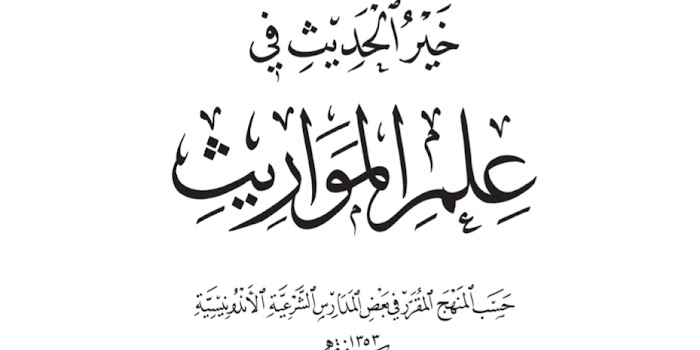 خَيْرُ الْحَدِيثِ فِي
عِلْمِ الْمَوَارِيثِ
حَسَبَ الْمَنْهَجِ الْمُقَرَّرِ فِي بَعْضِ الْمَدَارِسِ الشَّرْعِيَّةِ الْأَنْدُونِيسِيَّةِ
١٣٥٣هـ